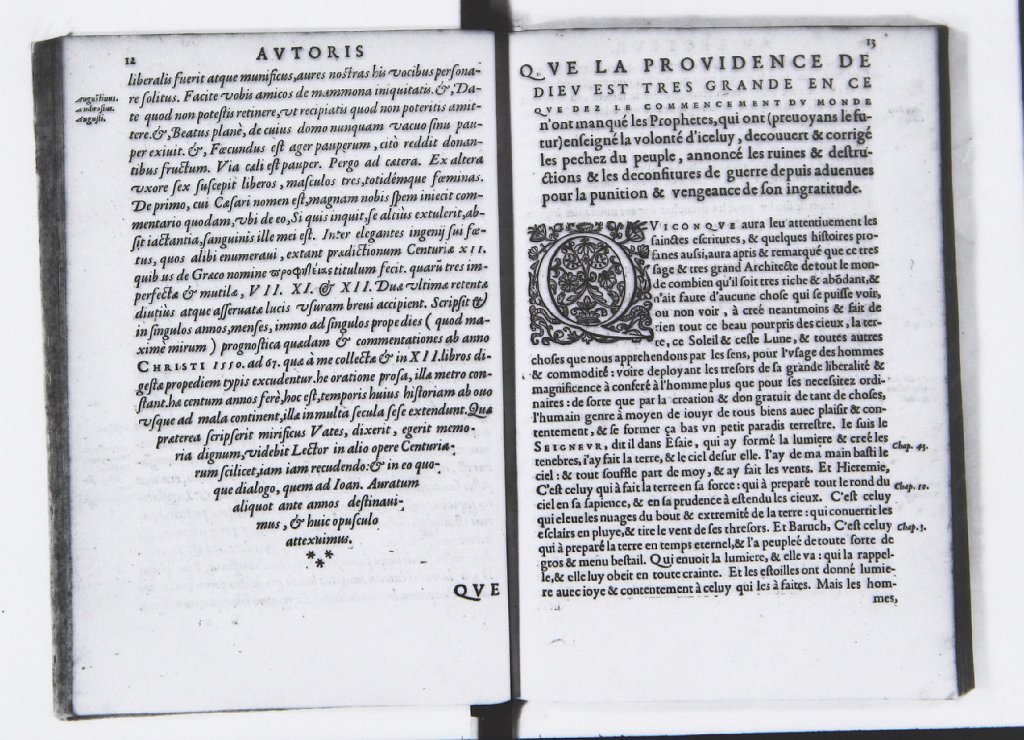 12
AVTORIS
liberalis fuerit atque munificus, aures nostras his vocibus persona-
re solitus. Facite vobis amicos de mammona iniquitatis. &, Da-
te quod non potestis retinere, vt recipiatis quod non poteritis amit-
tere. &, Beatus planè, de cuius domo nunquam vacuo sinu pau-
per exiuit. &, Fœcundus est ager pauperum, citò reddit donan-
tibus fructum. Via cæli est pauper. Pergo ad cætera. Ex altera
vxore sex suscepit liberos, masculos tres, totidémque fœminas.
De primo, cui Cæsari nomen est, magnam nobis spem iniecit com-
mentario quodam, vbi de eo, Si quis inquit, se altius extulerit, ab-
sit iactantia, sanguinis ille mei est. Inter elegantes ingenij sui fœ-
tus, quos alibi enumeraui, extant prædictionum Centuriæ XII.
quibus de Græco nomine titulum fecit. quarũ tres im-
perfectæ & mutilæ, VII. XI. & XII. Duæ vltimæ retentæ
diutius atque asseruatæ lucis vsuram breui accipient. Scripsit &
in singulos annos, menses, immo ad singulos prope dies ( quod ma-
xime mirum ) prognostica quædam & commentationes ab anno
CHRISTI 1550. ad 67. quæ à me collectæ & in XII. libros di-
gestæ propediem typis excudentur. hæ oratione prosa, illæ metro con-
stant. hæ centum annos ferè, hoc est, temporis huius historiam ab ouo
vsque ad mala continent, illæ in multa secula sese extendunt. Quæ
præterea scripserit mirificus Vates, dixerit, egerit memo-
ria dignum, videbit Lector in alio opere Centuria-
rum scilicet, iam iam recudendo: & in eo quo-
que dialogo, quem ad Ioan. Auratum
aliquot ante annos destinaui-
mus, & huic opusculo
attexuimus.
***
QVE
Augustinus.
Ambrosius.
Augusti.
13
QVE LA PROVIDENCE DE
DIEV EST TRES GRANDE EN CE
QVE DEZ LE COMMENCEMENT DV MONDE
n'ont manqué les Prophetes, qui ont (preuoyans le fu-
tur) enseigné la volonté d'iceluy, decouuert & corrigé
les pechez du peuple, annoncé les ruines & destru-
ctions & les deconfitures de guerre depuis aduenues
pour la punition & vengeance de son ingratitude.
QVICONQVE aura leu attentiuement les
sainctes escritures, & quelques histoires pro-
fanes aussi, aura apris & remarqué que ce tres
sage & tres grand Architecte de tout le mon-
de combien qu'il soit tres riche & abõdant, &
n'ait faute d'aucune chose qui se puisse voir,
ou non voir, à creé neantmoins & fait de
rien tout ce beau pourpris des cieux, la ter-
re, ce Soleil & ceste Lune, & toutes autres
choses que nous apprehendons par les sens, pour l'vsage des hommes
& commodité: voire deployant les tresors de sa grande liberalité &
magnificence à conferé à l'homme plus que pour ses necessitez ordi-
naires: de sorte que par la creation & don gratuit de tant de choses,
l'humain genre à moyen de iouyr de tous biens auec plaisir & con-
tentement, & se former ça bas vn petit paradis terrestre. Ie suis le
SEIGNEVR, dit il dans Esaie, qui ay formé la lumiere & creé les
tenebres, i'ay fait la terre, & le ciel desur elle. I'ay de ma main basti le
ciel: & tout souffle part de moy, & ay fait les vents. Et Hieremie,
C'est celuy qui à fait la terre en sa force: qui à preparé tout le rond du
ciel en sa sapience, & en sa prudence à estendu les cieux. C'est celuy
qui eleue les nuages du bout & extremité de la terre: qui conuertit les
esclairs en pluye, & tire le vent de ses thresors. Et Baruch, C'est celuy
qui à preparé la terre en temps eternel, & l'a peupleé de toute sorte de
gros & menu bestail. Qui enuoit la lumiere, & elle va: qui la rappel-
le, & elle luy obeit en toute crainte. Et les estoilles ont donné lumie-
re auec ioye & contentement à celuy qui les à faites. Mais les hom-
mes,
Chap. 45.
Chap. 10.
Chap. 3.